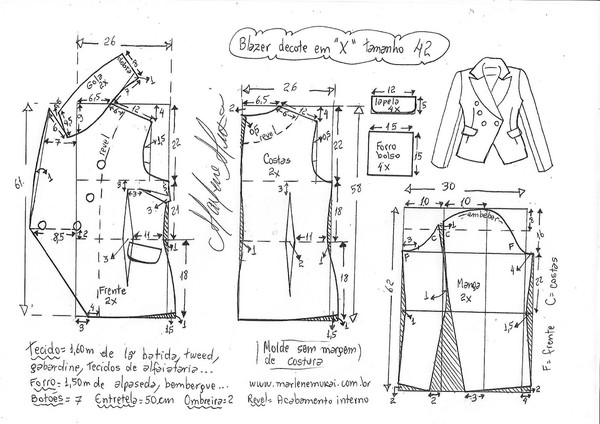 Blazer decote em "X" tamanho 42
26
Gola 2x
1
6,5
12
4
9
7
revel
1,5
22
61
1
3
3
21
8,5
2
11
1
3
18
Frente 2x
4
3
1,5
1
Marlene Mukai
26
2
6,5
12
4
0,5
revel
1,5
22
Costas 2x
58
3
18
11
1
2
1
18
1,5
1
12
lapela 4x
5
15
Forro bolso 4x
15
30
10
10
embeber
3
C
1
C
F
P
4
62
Manga 2x
22
1
1
1,5
2
2
3
2
F= frente C= costas
Tecido= 1,60m de lã batida, tweed,
gabardine, Tecidos de alfaiataria...
Forro= 1,50m de alpaseda, bemberque...
Botões= 7 Entretela= 50cm Ombreira= 2
Molde sem margem
de costura
www.marlenemukai.com.br
Revel= Acabamento interno